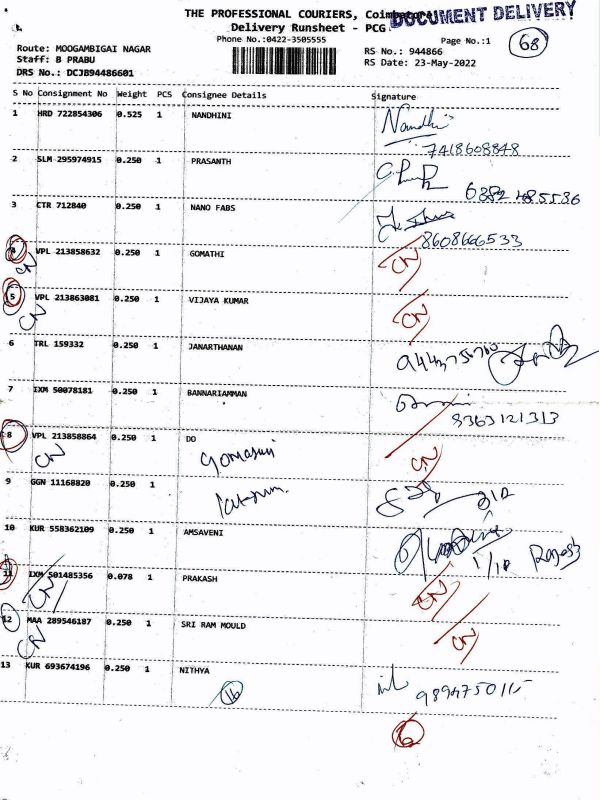 THE PROFESSIONAL COURIERS, Coimbatore
DOCUMENT DELIVERY
Delivery Runsheet - PCG
Phone No.:0422-3505555
Page No.:1
68
Route: MOOGAMBIGAI NAGAR
RS No.: 944866
Staff: B PRABU
RS Date: 23-May-2022
DRS No.: DCJB94486601
S No Consignment No Weight PCS Consignee Details Signature
1 HRD 722854306 0.525 1 NANDHINI Nandhi
7418608848
2 SLM 295974915 0.250 1 PRASANTH
6382485536
3 CTR 712840 0.250 1 NANO FABS
8608666533
4 VPL 213858632 0.250 1 GOMATHI CN
CN
5 VPL 213863081 0.250 1 VIJAYA KUMAR CN
CN
6 TRL 159332 0.250 1 JANARTHANAN
7 IXM 50078181 0.250 1 BANNARIAMMAN
8363121313
8 VPL 213858864 0.250 1 DO CN
CN
9 GGN 11168820 0.250 1
10 KUR 558362109 0.250 1 AMSAVENI
11 IXM 501485356 0.078 1 PRAKASH CN
CN
12 MAA 289546187 0.250 1 SRI RAM MOULD CN
CN
13 KUR 693674196 0.250 1 NITHYA
16
6